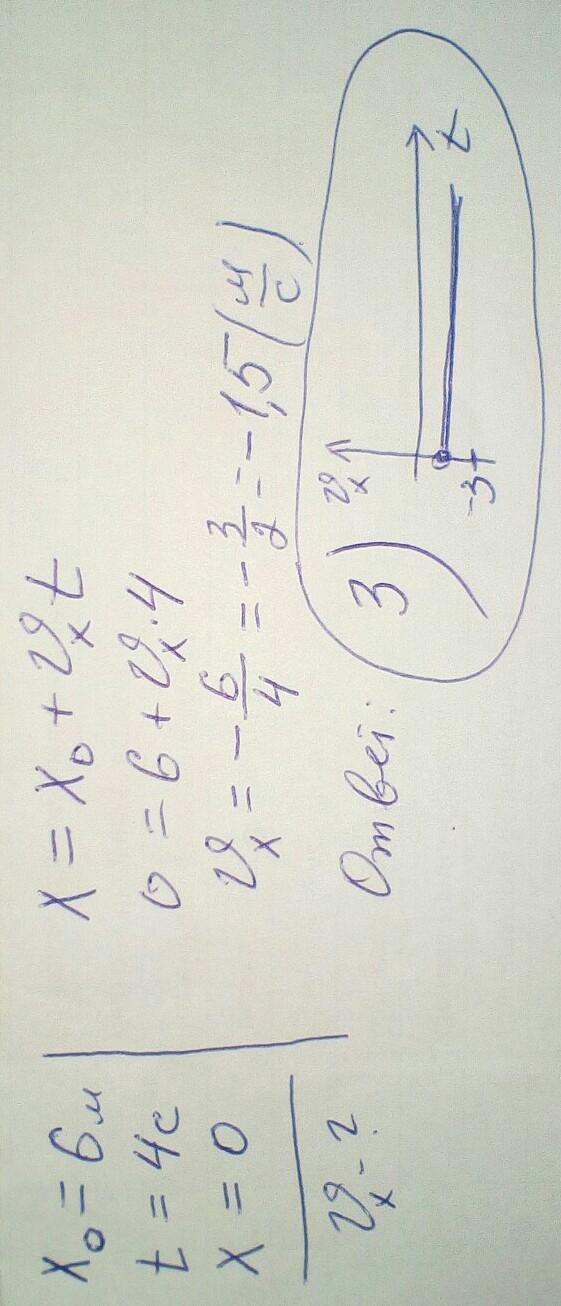 x₀ = 6 м
t = 4 с
x = 0
𝜗ₓ - ?
x = x₀ + 𝜗ₓt
0 = 6 + 𝜗ₓ·4
𝜗ₓ = -6/4 = -3/2 = -1,5 (м/с)
Ответ: 3)
𝜗ₓ
t
-3